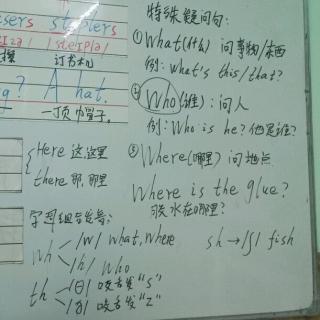 sers staplers
/steɪplə/
订书机
? A hat.
一顶帽子.
Here 这,这里
there 那,那里
学习组合发音:
wh /w/ what, where
/h/ who
th /θ/ 咬舌发"s"
/ð/ 咬舌发"z"
特殊疑问句:
①What(什么) 问事物/东西
例: what's this/that?
②Who(谁): 问人
例: Who is he? 他是谁?
③Where(哪里) 问地点
Where is the glue?
胶水在哪里?
sh→/ʃ/ fish